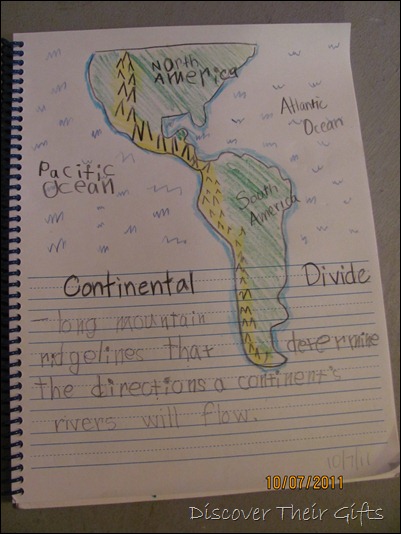 North
America
Atlantic
Ocean
Pacific
Ocean
South
America
Continental Divide
- long mountain
ridgelines that determine
the directions a continent's
rivers will flow.
10/7/11
10/07/2011
Discover Their Gifts